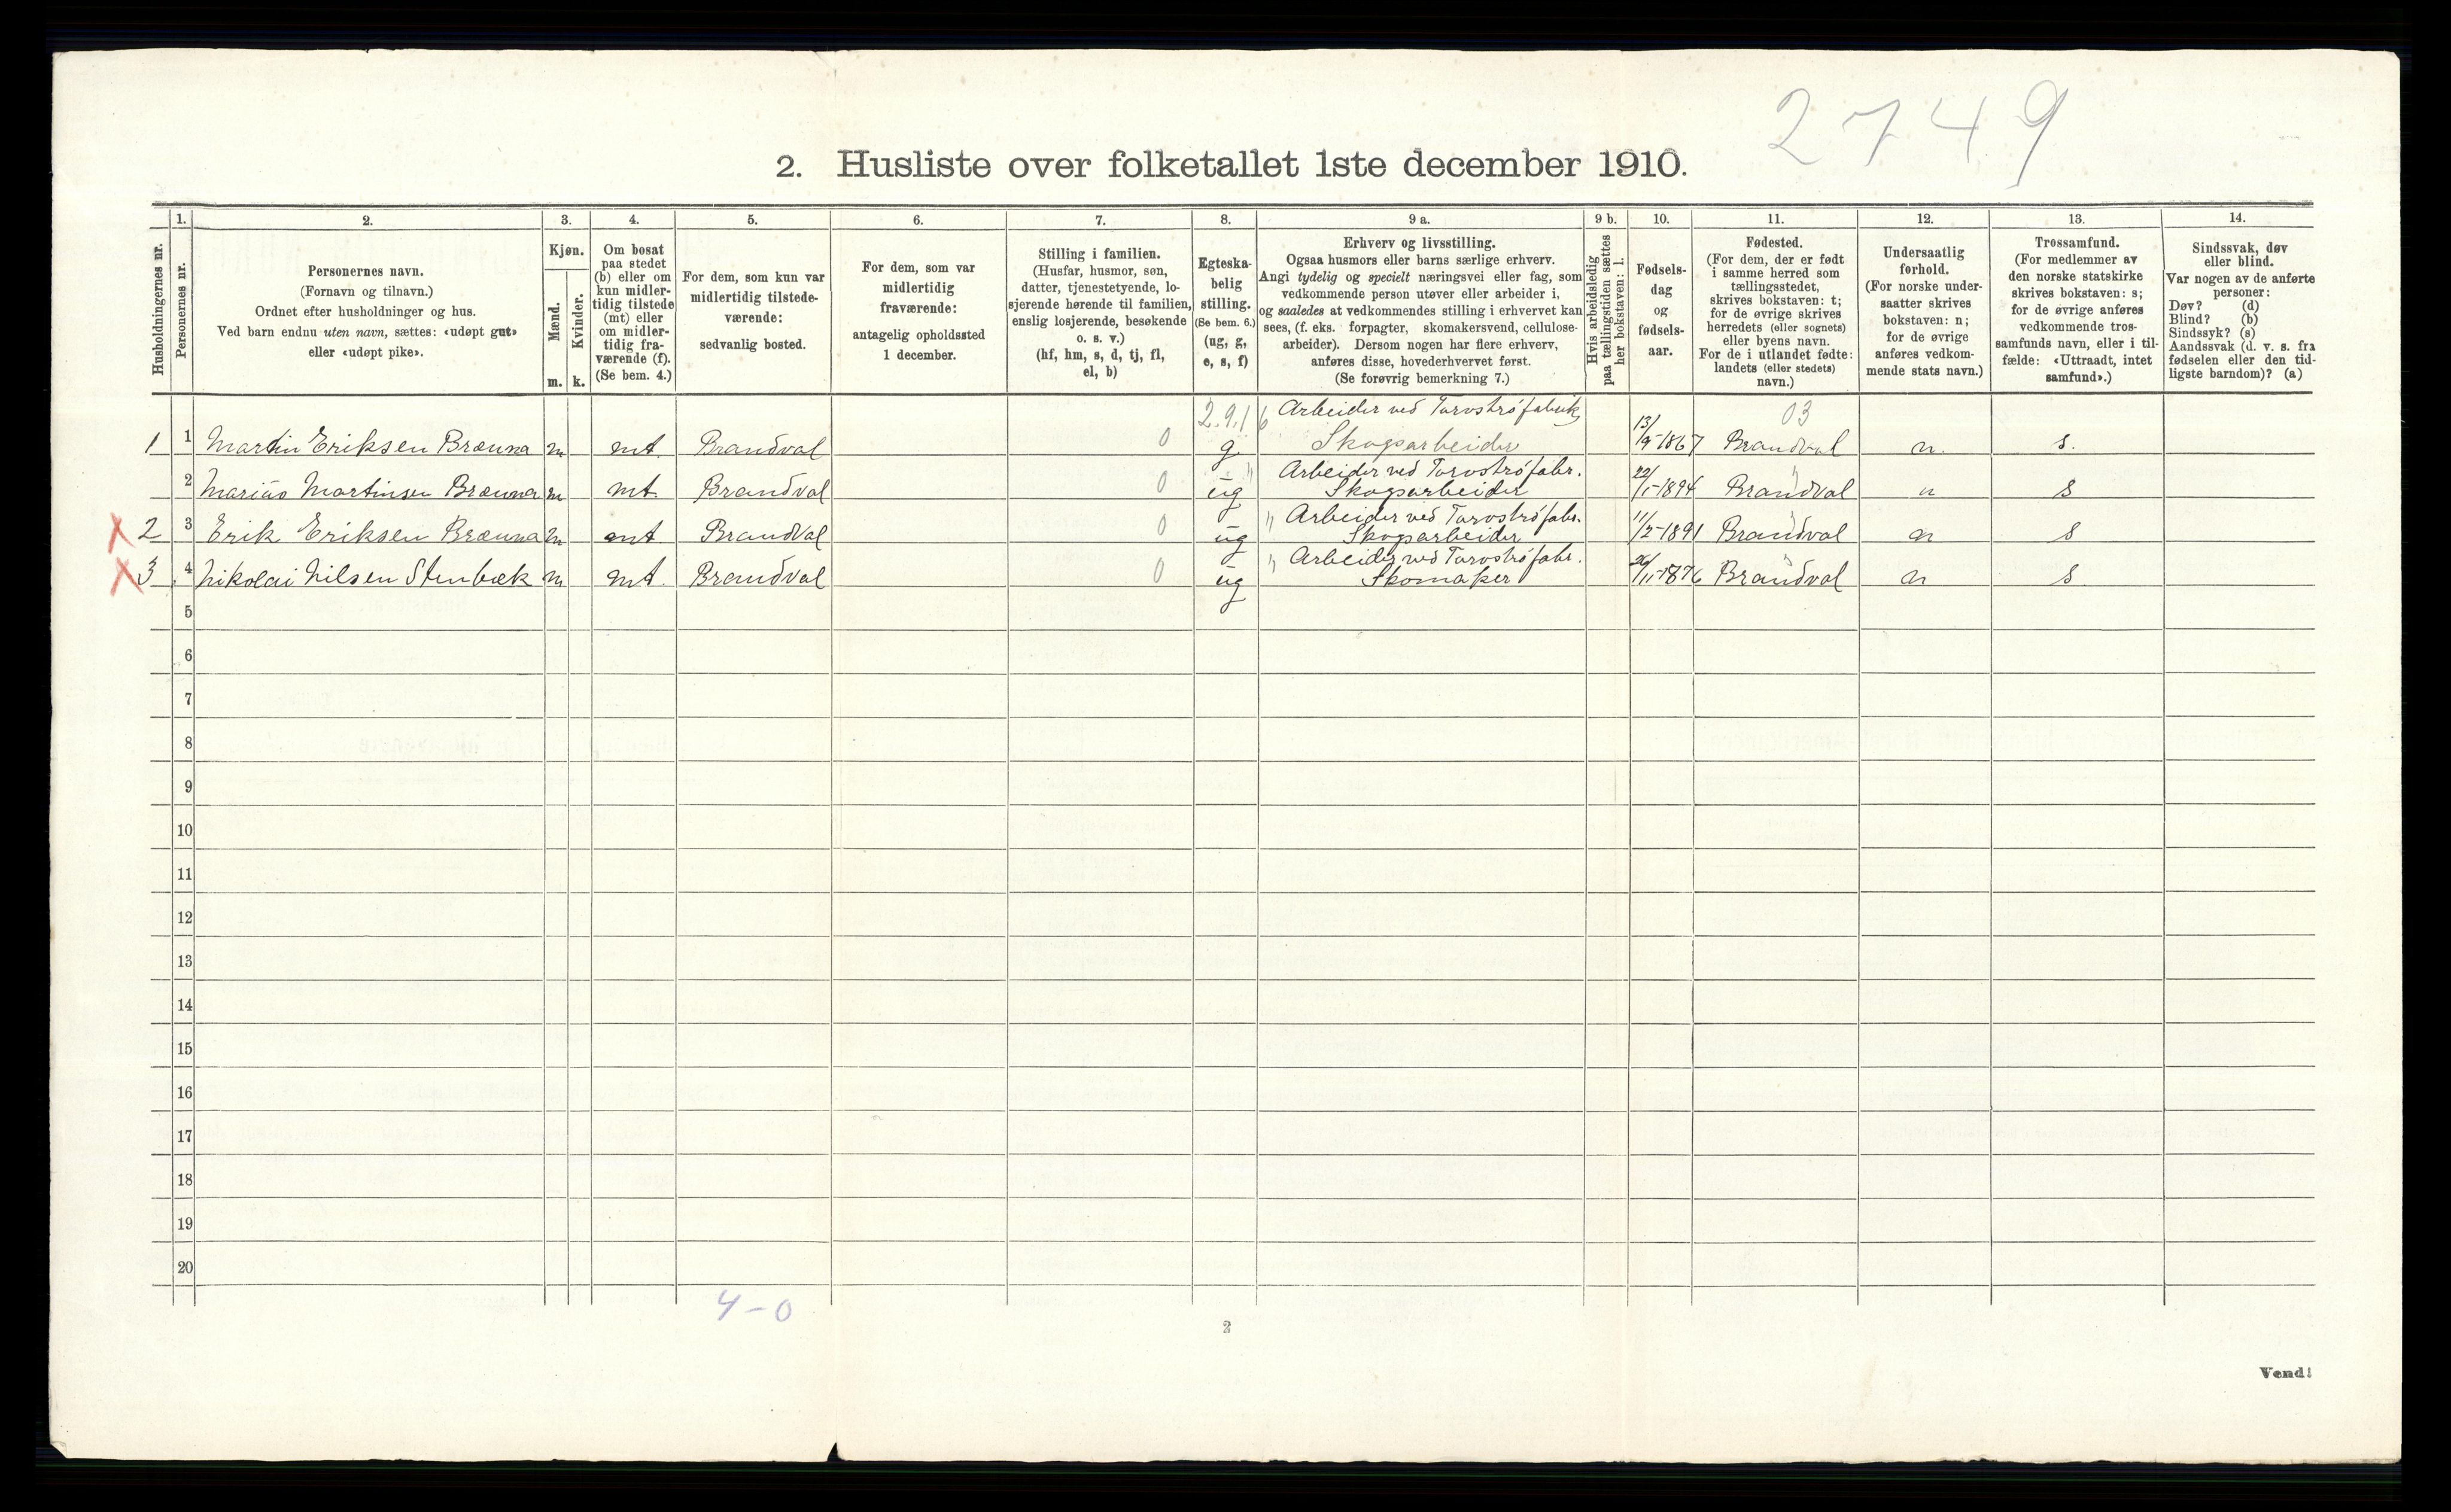 2749
2. Husliste over folketallet 1ste december 1910.
Husholdningernes nr.
1.
Personernes nr.
2.
Personernes navn.
(Fornavn og tilnavn.)
Ordnet efter husholdninger og hus.
Ved barn endnu uten navn, sættes: «udøpt gut»
eller «udøpt pike».
3.
Kjøn.
Mænd.
Kvinder.
m. k.
4.
Om bosat
paa stedet
(b) eller om
kun midler-
tidig tilstede
(mt) eller
om midler-
tidig fra-
værende (f).
(Se bem. 4.)
5.
For dem, som kun var
midlertidig tilstede-
værende:
sedvanlig bosted.
6.
For dem, som var
midlertidig
fraværende:
antagelig opholdssted
1 december.
7.
Stilling i familien.
(Husfar, husmor, søn,
datter, tjenestetyende, lo-
sjerende hørende til familien,
enslig losjerende, besøkende
o. s. v.)
(hf, hm, s, d, tj, fl,
el, b)
8.
Egteska-
belig
stilling.
(Se bem. 6.)
(ug, g,
e, s, f)
9 a.
Erhverv og livsstilling.
Ogsaa husmors eller barns særlige erhverv.
Angi tydelig og specielt næringsvei eller fag, som
vedkommende person utøver eller arbeider i,
og saaledes at vedkommendes stilling i erhvervet kan
sees, (f. eks. forpagter, skomakersvend, cellulose-
arbeider). Dersom nogen har flere erhverv,
anføres disse, hovederhvervet først.
(Se forøvrig bemerkning 7.)
9 b.
Hvis arbeidsledig
paa tællingstiden sættes
her bokstaven: l.
10.
Fødsels-
dag
og
fødsels-
aar.
11.
Fødested.
(For dem, der er født
i samme herred som
tællingsstedet,
skrives bokstaven: t;
for de øvrige skrives
herredets (eller sognets)
eller byens navn.
For de i utlandet fødte:
landets (eller stedets)
navn.)
12.
Undersaatlig
forhold.
(For norske under-
saatter skrives
bokstaven: n;
for de øvrige
anføres vedkom-
mende stats navn.)
13.
Trossamfund.
(For medlemmer av
den norske statskirke
skrives bokstaven: s;
for de øvrige anføres
vedkommende tros-
samfunds navn, eller i til-
fælde: «Uttraadt, intet
samfund».)
14.
Sindssvak, døv
eller blind.
Var nogen av de anførte
personer:
Døv? (d)
Blind? (b)
Sindssyk? (s)
Aandssvak (d. v. s. fra
fødselen eller den tid-
ligste barndom)? (a)
2.9.1 6 Arbeider ved Torvströfabrik 03
1 1 Martin Eriksen Brænna m mt. Brandval 0 g Skogsarbeider 13/9-1867 Brandval n. s.
" Arbeider ved Torvströfabr.
2 Marius Martinsen Brænna m mt. Brandval 0 ug Skogsarbeider 22/1-1894 Brandval n s
" Arbeider ved Torvströfabr.
X 2 3 Erik Eriksen Brænna m mt Brandval 0 ug Skogsarbeider 11/2-1891 Brandval n s
" Arbeider ved Torvströfabr.
X 3 4 Nikolai Nilsen Stenbæk m mt. Brandval 0 ug Skomaker 26/11-1876 Brandval n s
5
6
7
8
9
10
11
12
13
14
15
16
17
18
19
20
4-0
2
Vend!